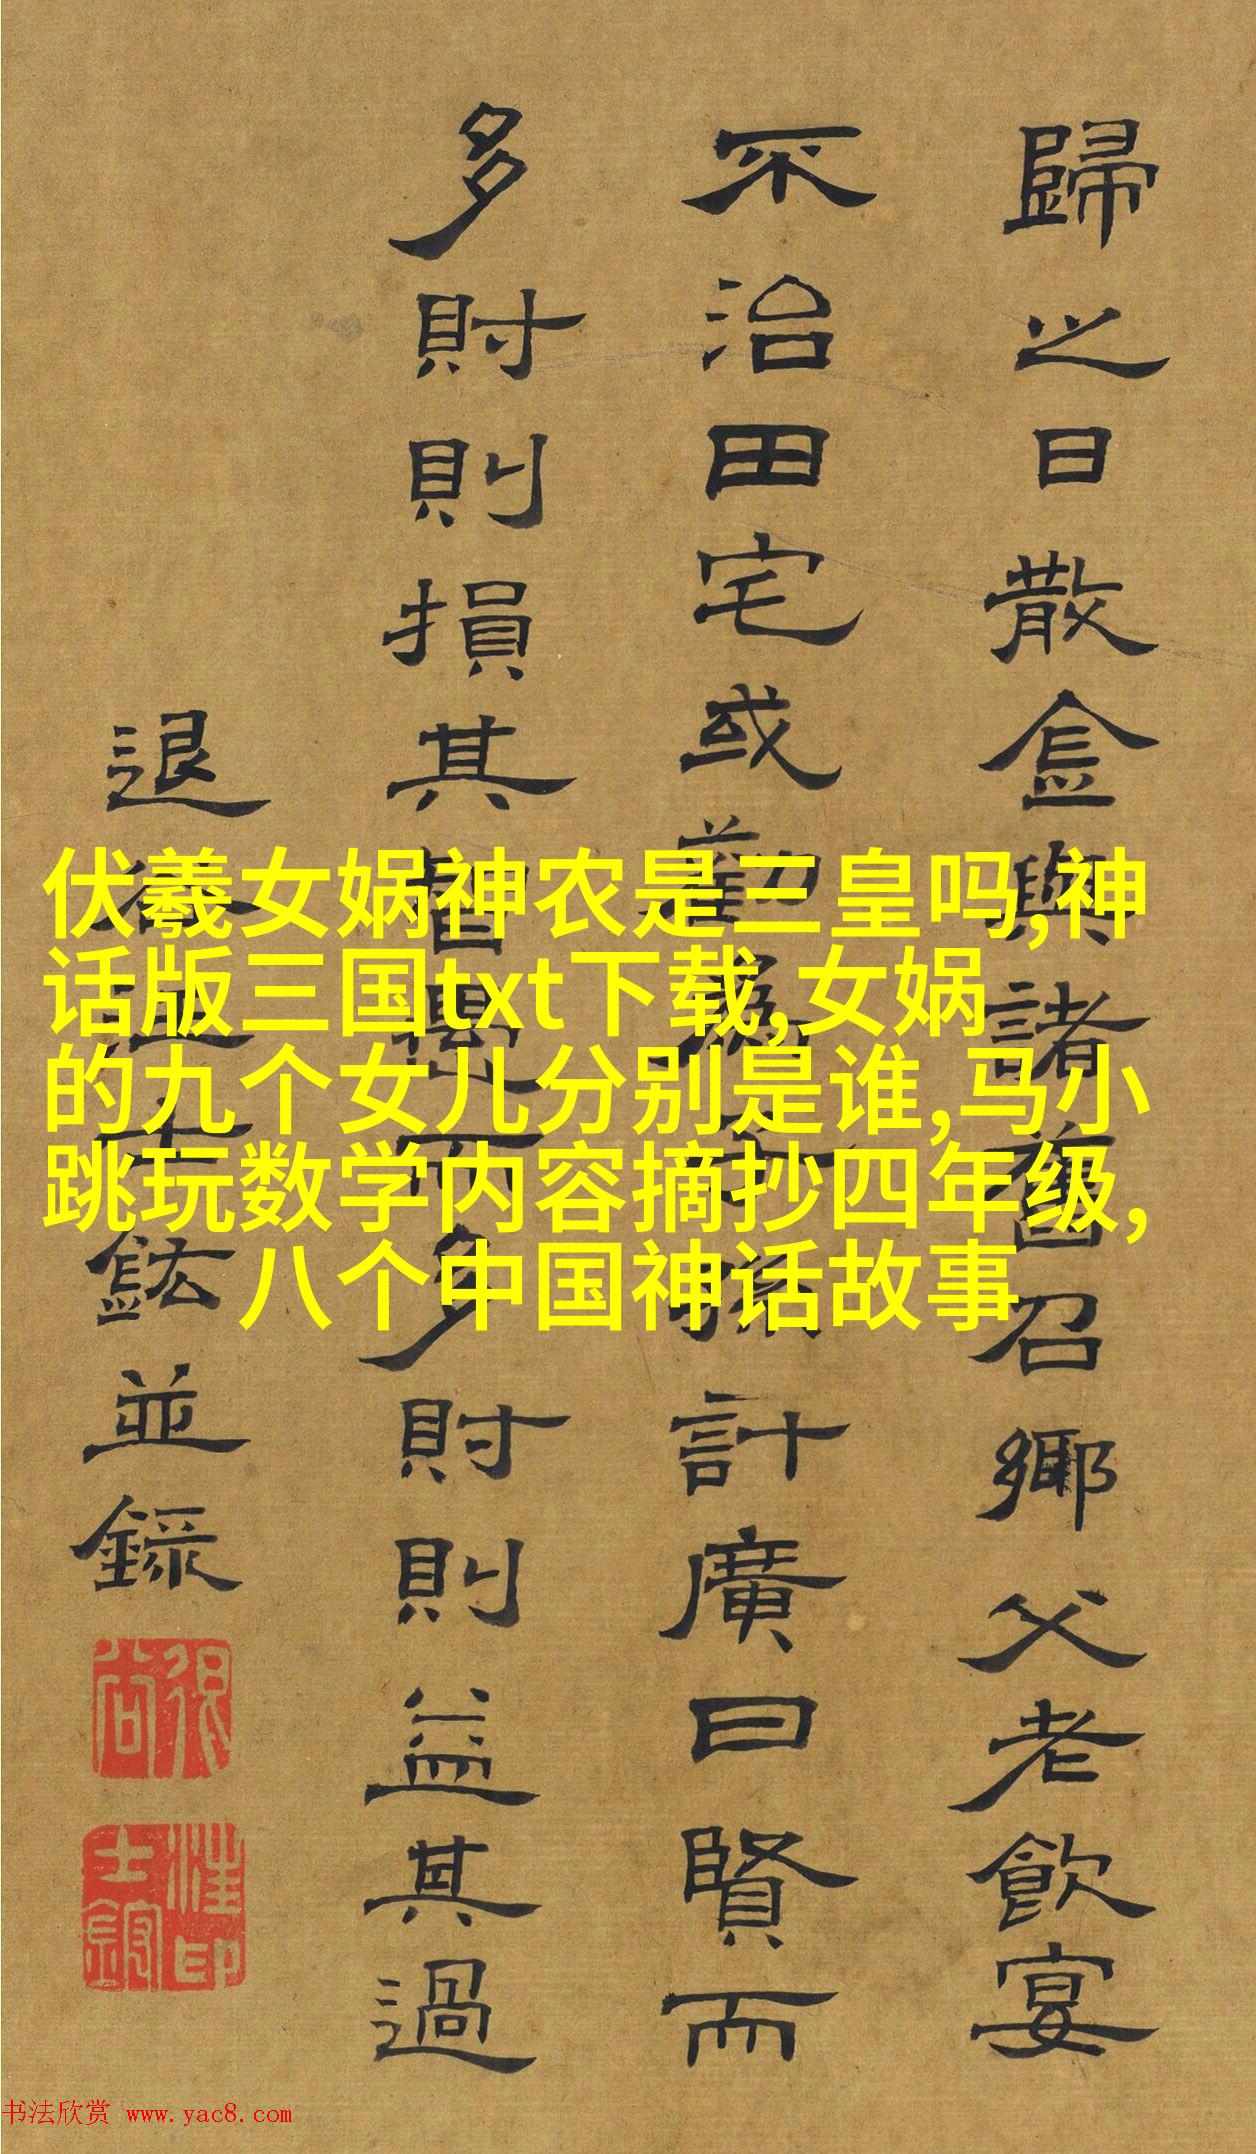 歸之日散金與諸舊召鄉父老飲宴
不治田宅或勸為子孫計廣曰賢而
多財則損其智愚而多財則益其過
退谷汪士鋐並錄
汪印士鋐
伏羲女娲神农是三皇吗,神
话版三国txt下载,女娲
的九个女儿分别是谁,马小
跳玩数学内容摘抄四年级,
八个中国神话故事
书法欣赏 www.yac8.com